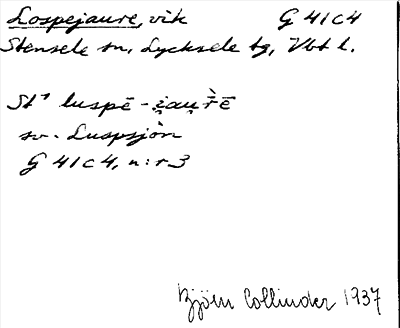 Lospejaure, vik G 41C4
Stensele sn, Lycksele tg, Vbt l.
St¹ luspē-i̯au̯r̄ē
sv. Luspsjön
G 41C4, n:r 3
Björn Collinder 1937